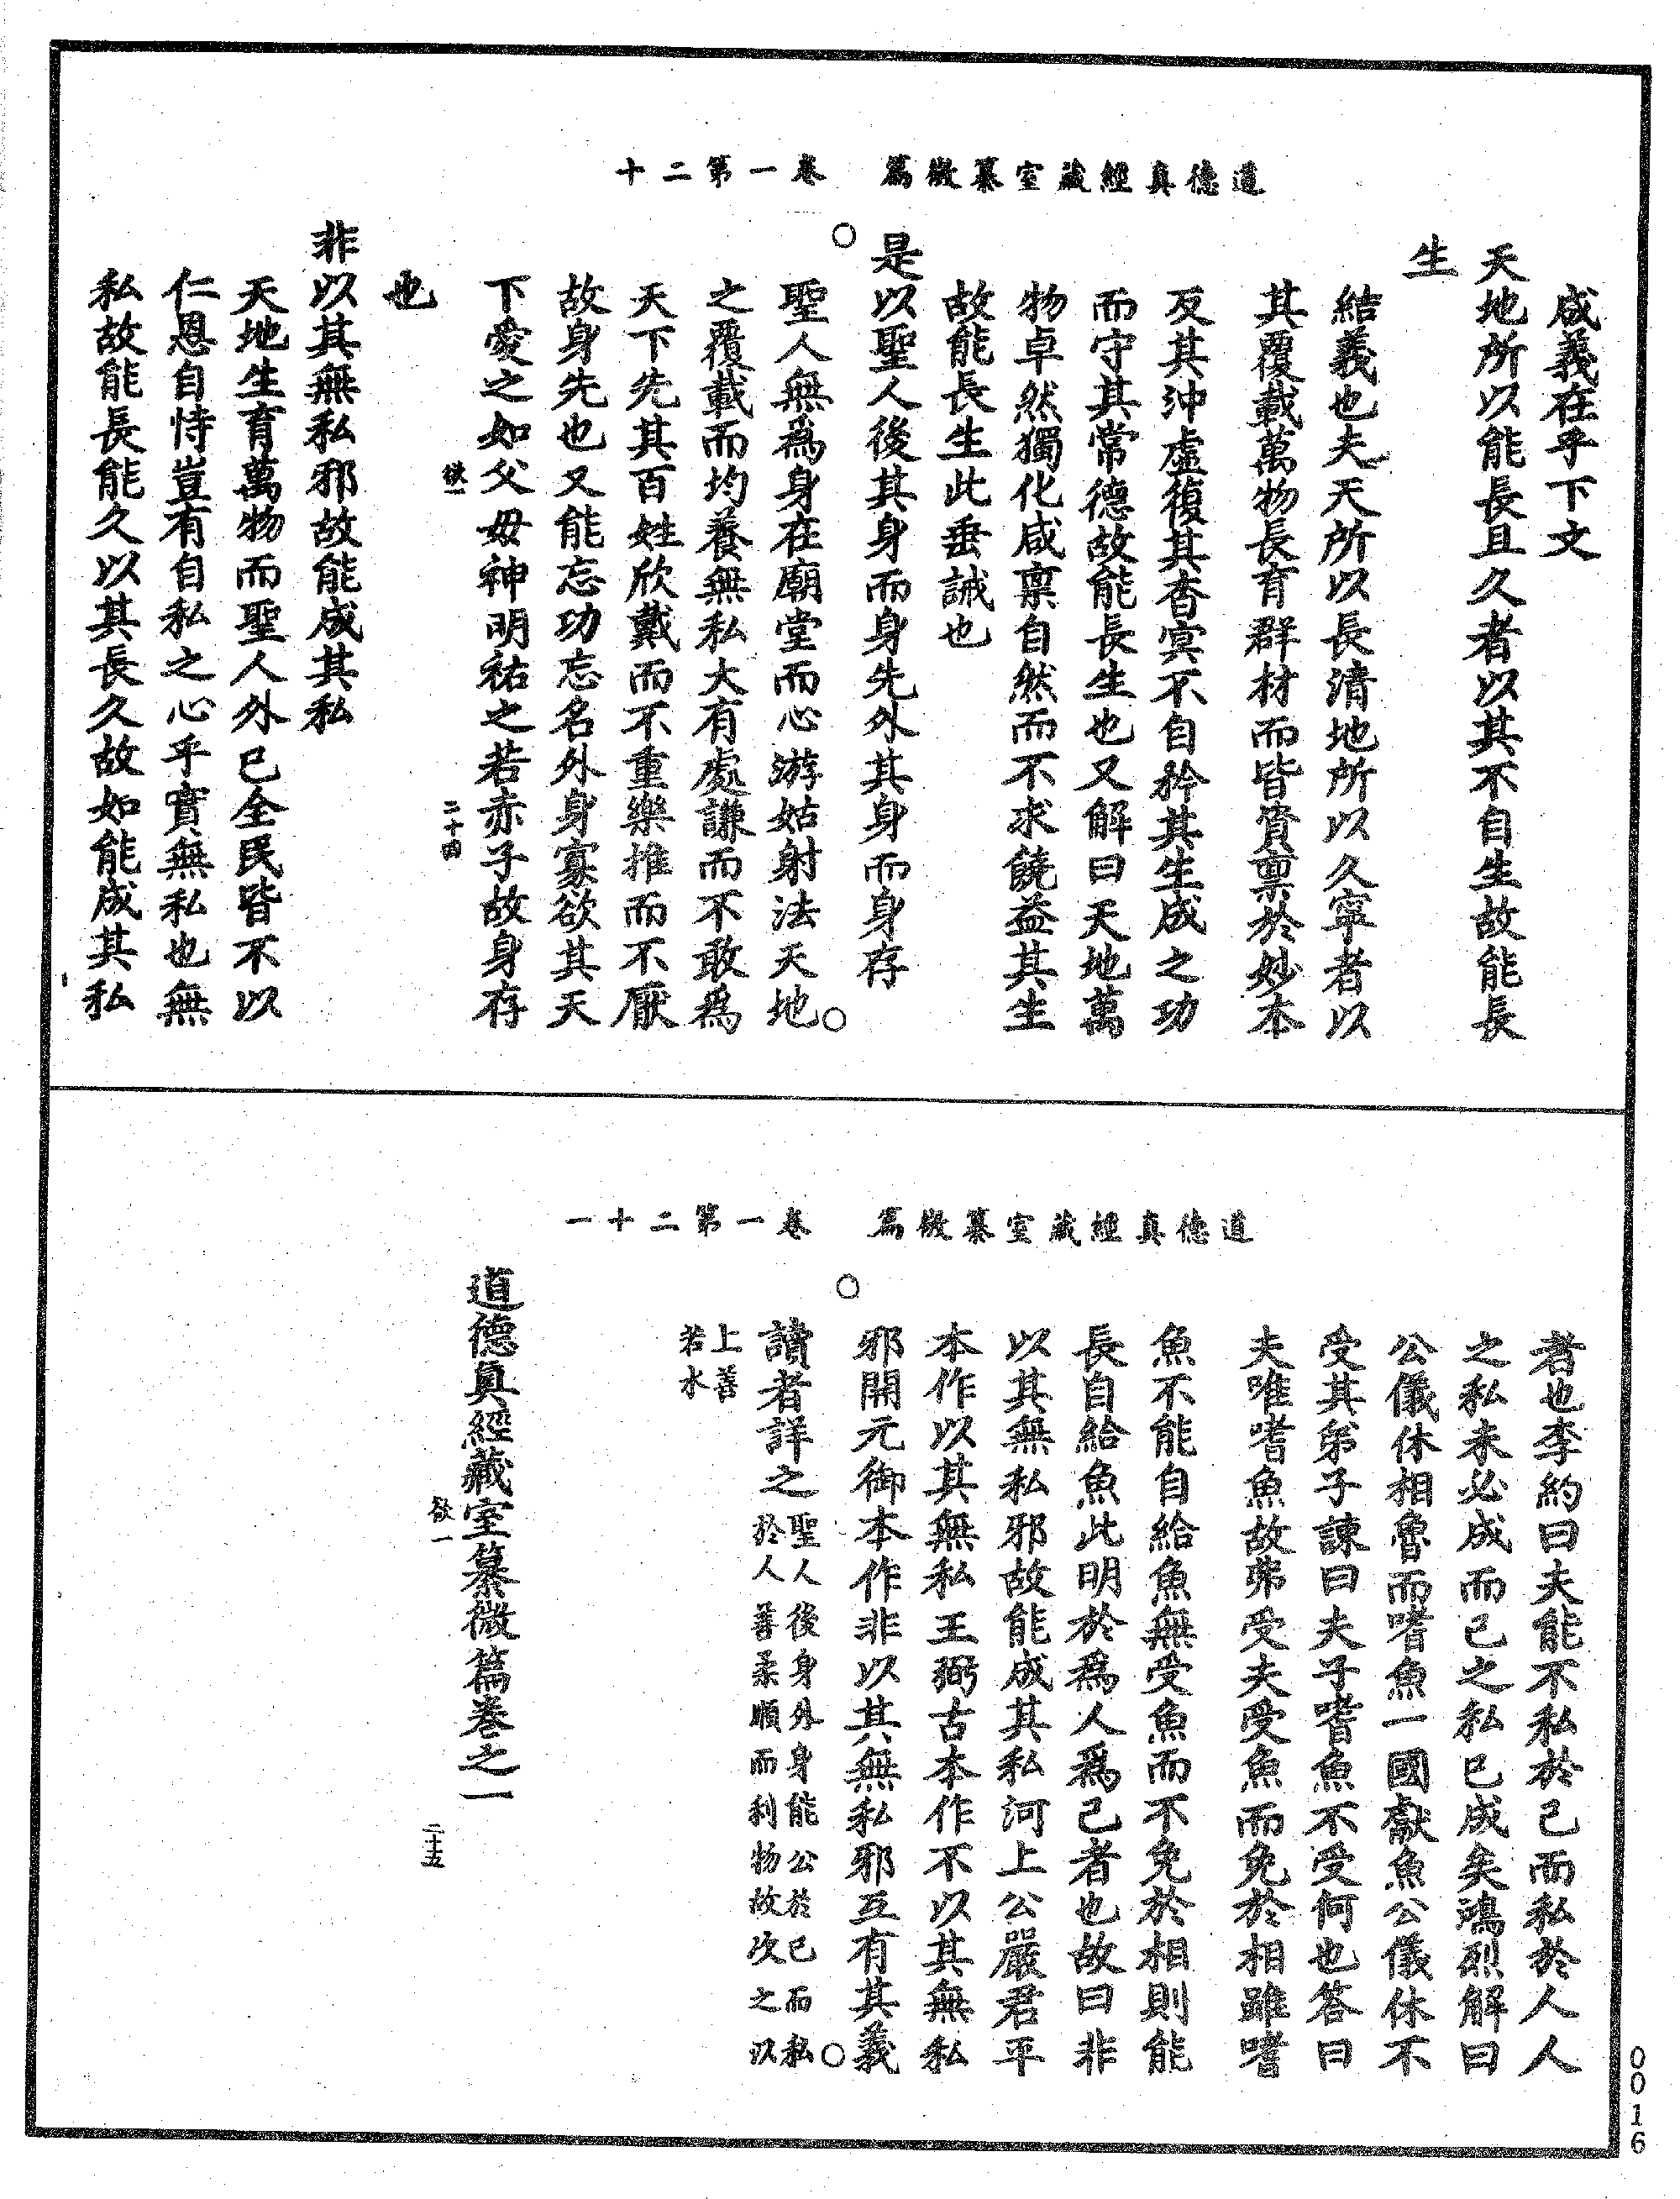 道德真經藏室纂微篇　卷一第二十
咸義在乎下文
天地所以能長且久者以其不自生故能長
生
結義也夫天所以長清地所以久寧者以
其覆載萬物長育群材而皆資禀於妙本
反其沖虛復其杳冥不自矜其生成之功
而守其常德故能長生也又解曰天地萬
物卓然獨化咸禀自然而不求饒益其生
故能長生此垂誡也
是以聖人後其身而身先外其身而身存
聖人無為身在廟堂而心游姑射法天地
之覆載而均養無私大有處謙而不敢為
天下先其百姓欣戴而不重樂推而不厭
故身先也又能忘功忘名外身寡欲其天
下愛之如父毋神明祐之若赤子故身存
也
二十四
非以其無私邪故能成其私
天地生育萬物而聖人外已全民皆不以
仁恩自恃豈有自私之心乎實無私也無
私故能長能久以其長久故如能成其私
道德真經藏室纂微篇　卷一第二十一
者也李約曰夫能不私於己而私於人人
之私未必成而己之私已成矣鴻烈解曰
公儀休相魯而嗜魚一國獻魚公儀休不
受其弟子諫曰夫子嗜魚不受何也答曰
夫唯嗜魚故弗受夫受魚而免於相雖嗜
魚不能自給魚無受魚而不免於相則能
長自給魚此明於為人為己者也故曰非
以其無私邪故能成其私河上公嚴君平
本作以其無私王弼古本作不以其無私
邪開元御本作非以其無私邪互有其義
讀者詳之聖人後身外身能公於己而私
於人善柔順而利物故次之以
上善
若水
道德真經藏室纂微篇卷之一
欲一
二十五
0016